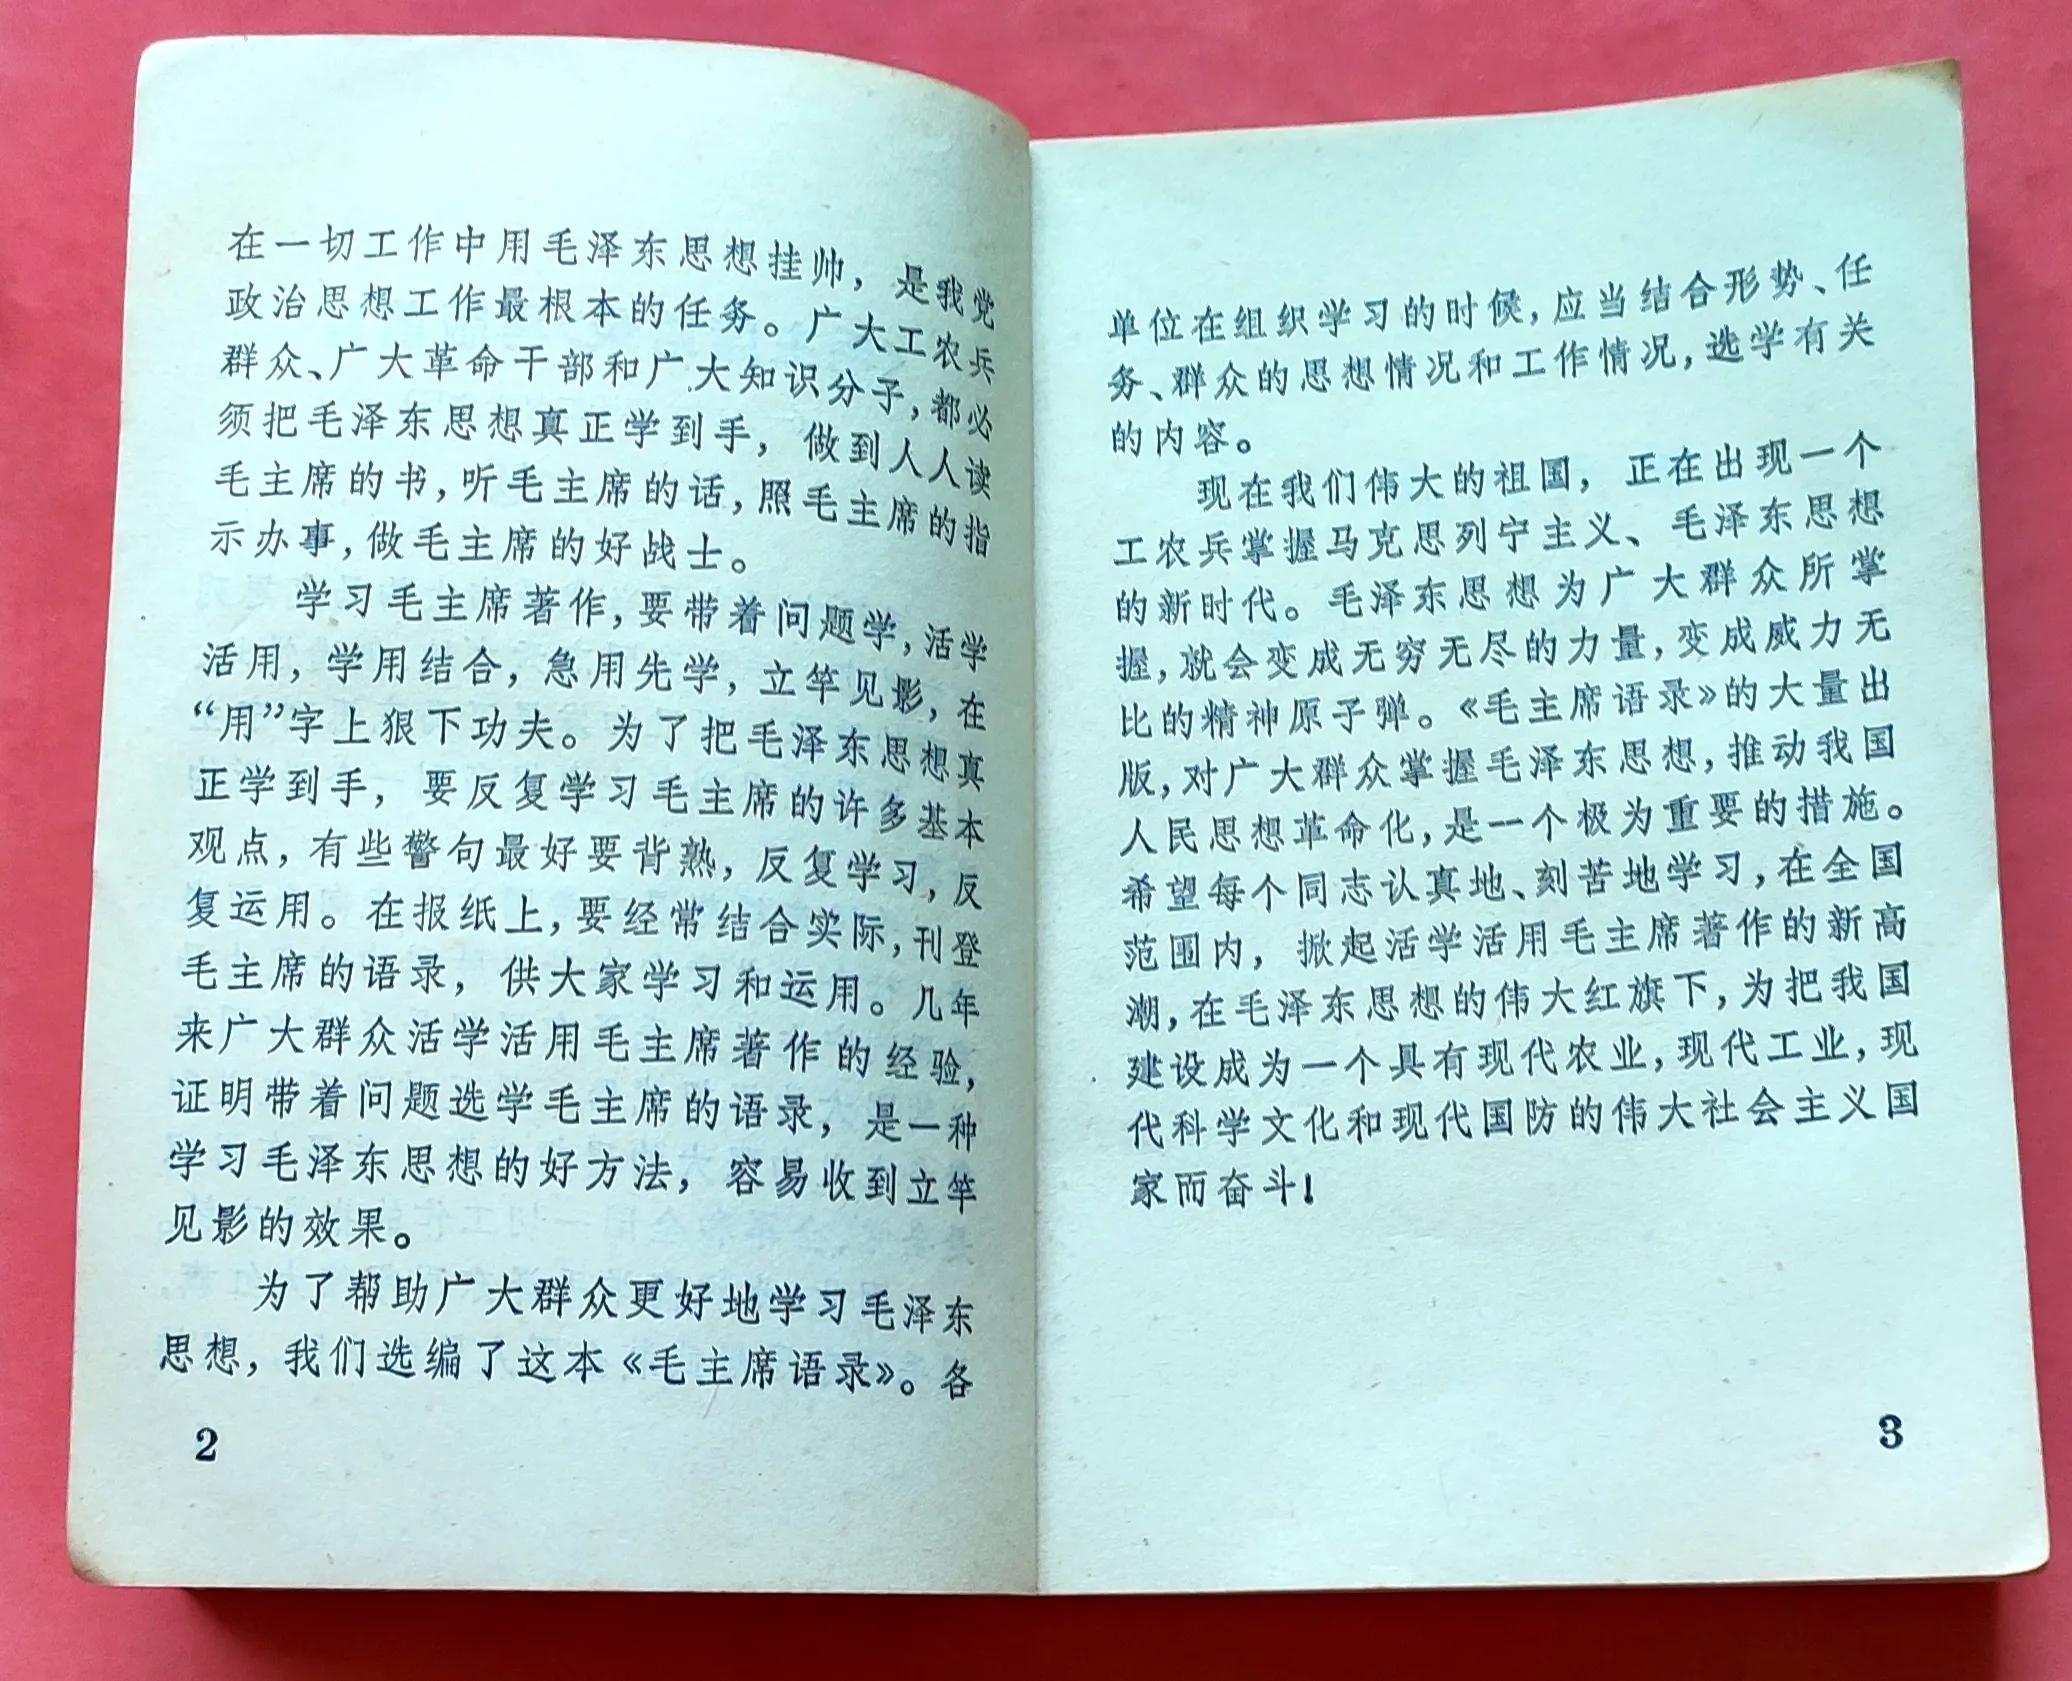 在一切工作中用毛泽东思想挂帅，是我党
政治思想工作最根本的任务。广大工农兵
群众、广大革命干部和广大知识分子，都必
须把毛泽东思想真正学到手，做到人人读
毛主席的书，听毛主席的话，照毛主席的指
示办事，做毛主席的好战士。
学习毛主席著作，要带着问题学，活学
活用，学用结合，急用先学，立竿见影，在
“用”字上狠下功夫。为了把毛泽东思想真
正学到手，要反复学习毛主席的许多基本
观点，有些警句最好要背熟，反复学习，反
复运用。在报纸上，要经常结合实际，刊登
毛主席的语录，供大家学习和运用。几年
来广大群众活学活用毛主席著作的经验，
证明带着问题选学毛主席的语录，是一种
学习毛泽东思想的好方法，容易收到立竿
见影的效果。
为了帮助广大群众更好地学习毛泽东
思想，我们选编了这本《毛主席语录》。各
2
单位在组织学习的时候，应当结合形势、任
务、群众的思想情况和工作情况，选学有关
的内容。
现在我们伟大的祖国，正在出现一个
工农兵掌握马克思列宁主义、毛泽东思想
的新时代。毛泽东思想为广大群众所掌
握，就会变成无穷无尽的力量，变成威力无
比的精神原子弹。《毛主席语录》的大量出
版，对广大群众掌握毛泽东思想，推动我国
人民思想革命化，是一个极为重要的措施。
希望每个同志认真地、刻苦地学习，在全国
范围内，掀起活学活用毛主席著作的新高
潮，在毛泽东思想的伟大红旗下，为把我国
建设成为一个具有现代农业，现代工业，现
代科学文化和现代国防的伟大社会主义国
家而奋斗！
3